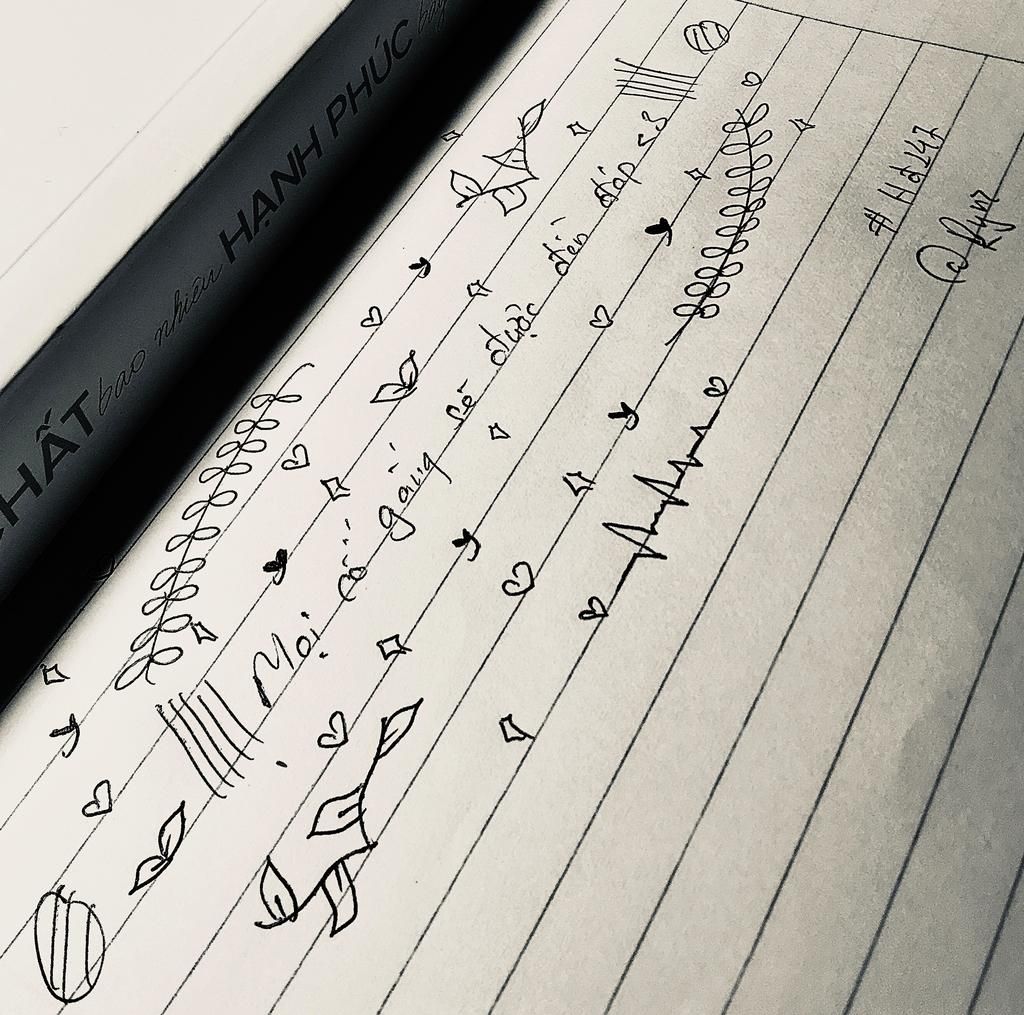 HẤT bao nhiêu HẠNH PHÚC bấy
Mọi cố gắng sẽ được đền đáp <3
# HdL47